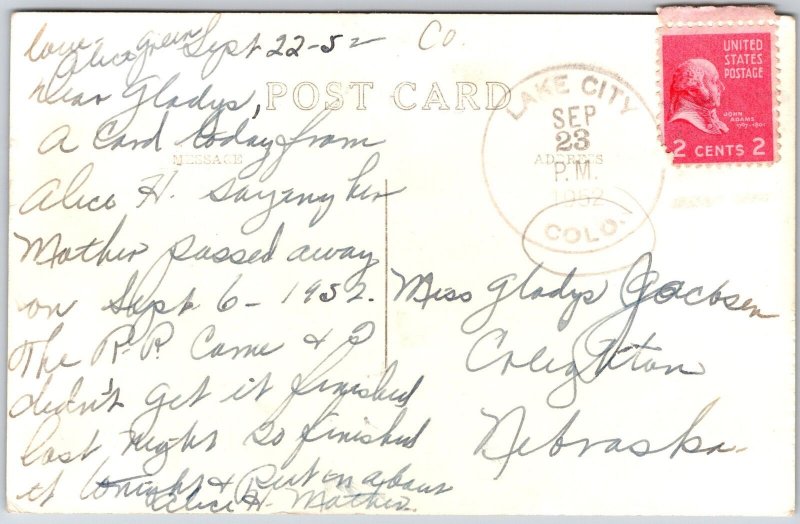 love- Alice Green Sept 22-52 Co.
Dear Gladys,
POST CARD
A Card today from
MESSAGE
Alice H. sayeng her
Mother passed away
on Sept 6-1952.
The R.R. Came & I
didn't get it finished
last night so finished
it tonight & Put in about
Alice H. Mother.
LAKE CITY
SEP
23
ADDRESS
P.M.
1952
COLO.
UNITED
STATES
POSTAGE
JOHN
ADAMS
1797-1801
2 CENTS 2
Miss Gladys Jacobsen
Creighton
Nebraska.